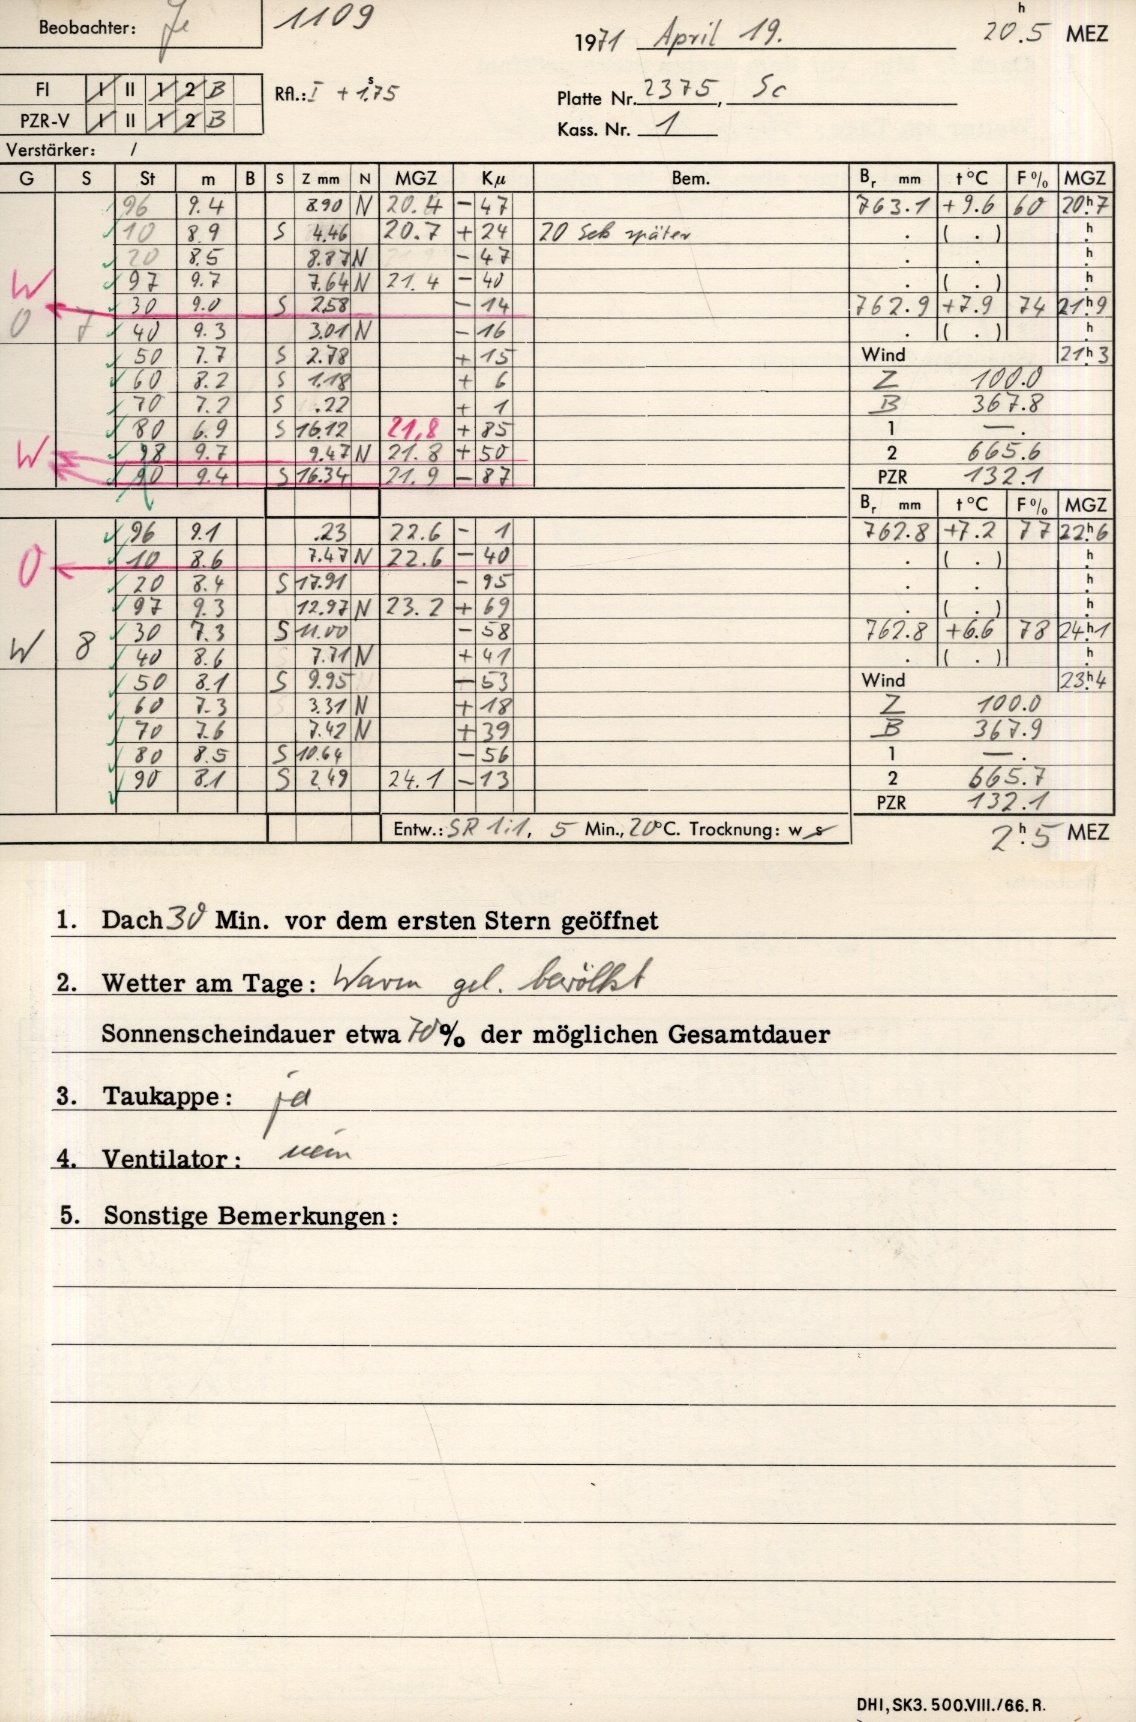 Beobachter: Je 1109
1971 April 19. 20.5 h MEZ
FI I II 1 2 B RA.: I + 1.75 s
Platte Nr. 2375, Sc
PZR-V I II 1 2 B
Kass. Nr. 1
Verstärker: /
G S St m B S Z mm N MGZ Kμ Bem. Br mm t °C F % MGZ
96 9.4 8.90 N 20.4 - 47 763.1 +9.6 60 20h7
10 8.9 S 4.46 20.7 + 24 20 Sek später . ( . ) h
20 8.5 8.87 N - 47 . . h
W 97 9.7 7.64 N 21.4 - 40 . ( . ) h
30 9.0 S 2.58 - 14 762.9 +7.9 74 21h9
O 7 40 9.3 3.01 N - 16 . ( . ) h
50 7.7 S 2.78 + 15 Wind 21h3
60 8.2 S 1.18 + 6 Z 100.0
70 7.2 S .22 + 1 B 367.8
80 6.9 S 16.12 21,8 + 85 1 — .
W 98 9.7 9.47 N 21.8 + 50 2 665.6
90 9.4 S 16.34 21.9 - 87 PZR 132.1
Br mm t °C F % MGZ
96 9.1 .23 22.6 - 1 762.8 +7.2 77 22h6
O 10 8.6 7.47 N 22.6 - 40 . ( . ) h
20 8.4 S 17.91 - 95 . . h
97 9.3 12.97 N 23.2 + 69 . ( . ) h
W 8 30 7.3 S 11.00 - 58 762.8 +6.6 78 24h1
40 8.6 7.71 N + 41 . ( . ) h
50 8.1 S 9.95 - 53 Wind 23h4
60 7.3 3.31 N + 18 Z 100.0
70 7.6 7.42 N + 39 B 367.9
80 8.5 S 10.64 - 56 1 — .
90 8.1 S 2.49 24.1 - 13 2 665.7
PZR 132.1
Entw.: SR 1:1, 5 Min., 20°C. Trocknung: w s 2h.5 MEZ
1. Dach 30 Min. vor dem ersten Stern geöffnet
2. Wetter am Tage: Warm gel. bewölkt
Sonnenscheindauer etwa 70% der möglichen Gesamtdauer
3. Taukappe: ja
4. Ventilator: nein
5. Sonstige Bemerkungen:
DHI, SK3. 500.VIII./66. R.